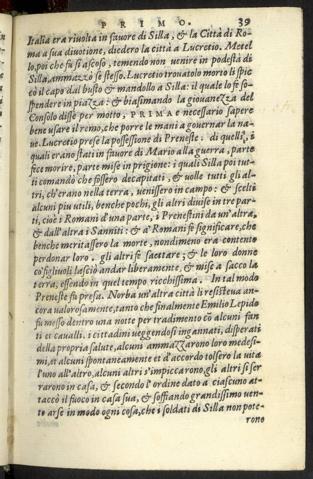 PRIMO. 39
Italia era riuolta in fauore di Silla, & la Città di Ro-
ma a sua diuotione, diedero la città a Lucretio. Metel
lo, poi che fu si ascoso, temendo non uenire in podestà di
Silla, ammazzò se stesso. Lucretio trouatolo morto li spic
cò il capo dal busto & mandollo a Silla: il quale lo fe so-
spendere in piazza: & biasimando la giouanezza del
Consolo disse per motto, PRIMA è necessario sapere
bene usare il remo, che porre le mani a gouernar la na-
ue. Lucretio prese la possessione di Preneste: di quelli, i
quali erano stati in fauore di Mario alla guerra, parte
fece morire, parte mise in prigione: i quali Silla poi tut-
ti comandò che fossero decapitati, & uolle tutti gli al-
tri, ch'erano nella terra, uenissero in campo: & scelti
alcuni piu utili, benche pochi, gli altri diuise in tre par-
ti, cioè i Romani d'una parte, i Prenestini da un'altra,
& dall'altra i Sanniti: & a' Romani fe significare, che
benche meritassero la morte, nondimeno era contento
perdonar loro. gli altri fe saettare; & le loro donne
co' figliuoli lasciò andar liberamente, & mise a sacco la
terra, essendo in quel tempo ricchissima. In tal modo
Preneste fu presa. Norba un'altra città li resisteua an-
cora ualorosamente, tanto che finalmente Emilio Lepido
fu messo dentro una notte per tradimento cō alcuni fan
ti et caualli. i cittadini ueggendosi ingannati, disperati
della propria salute, alcuni ammazzarono loro medesi-
mi, et alcuni spontaneamente et d'accordo tolsero la uita
l'uno all'altro, alcuni altri s'impiccarono, gli altri si ser
rarono in casa, & secondo l'ordine dato a ciascuno at-
taccò il fuoco in casa sua, & soffiando grandissimo uen-
to arse in modo ogni cosa, che i soldati di Silla non pote-
rono